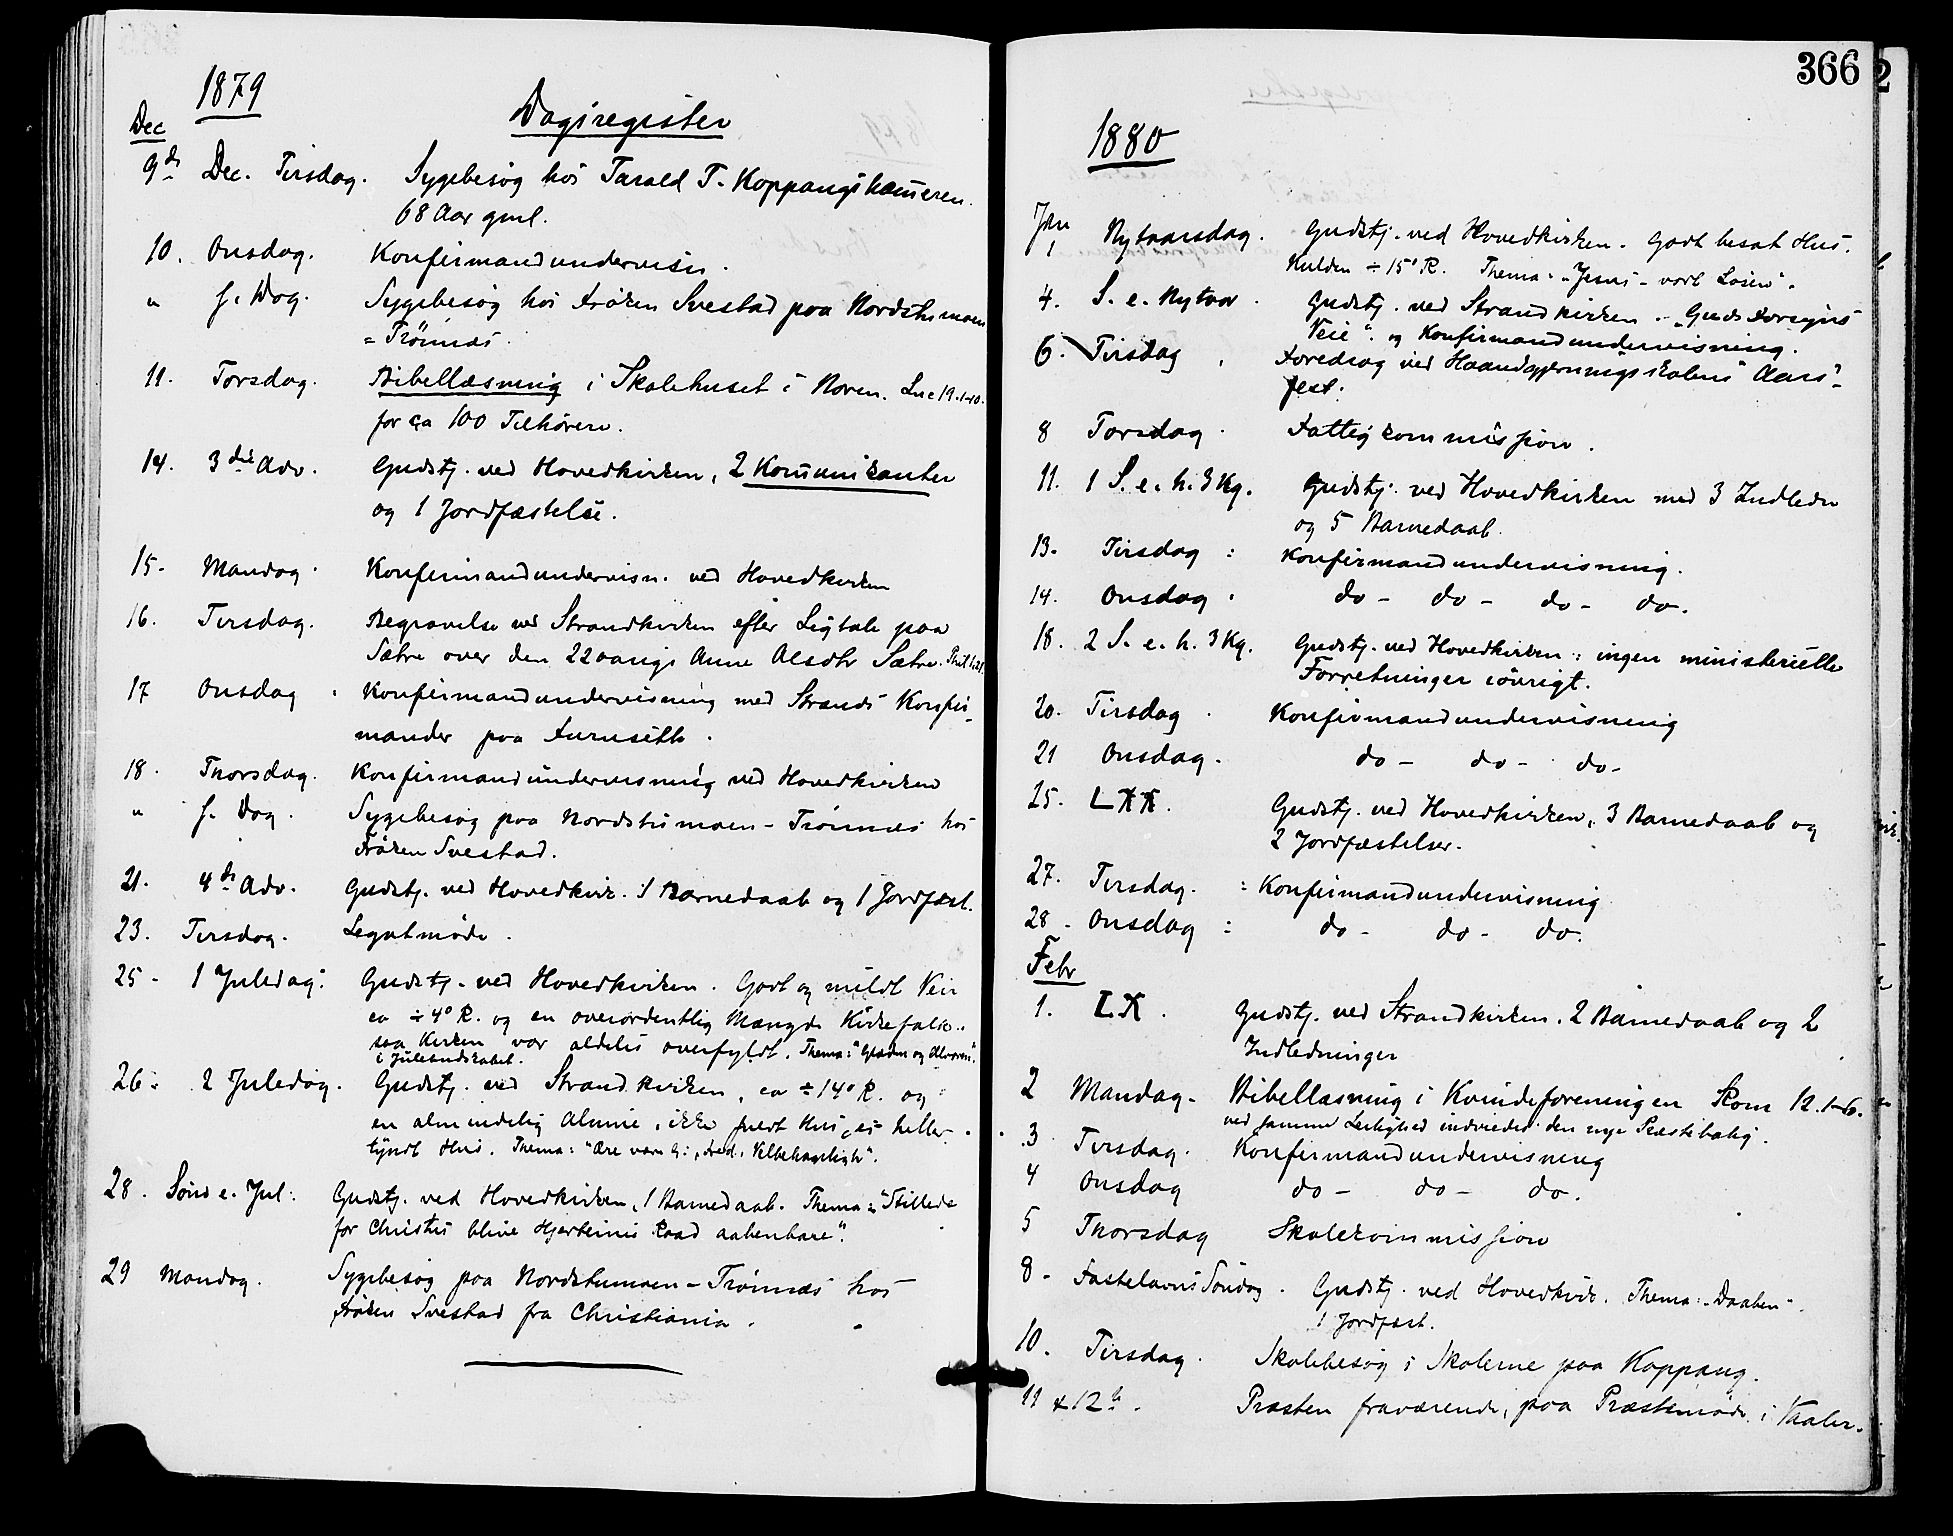 1879
Dagsregister
Dec
9de Dec. Tirsdag. Sygebesøg hos Tarald T. Koppangskammeren.
68 Aar gml.
10. Onsdag. Konfirmandundervisn.
" s. Dag. Sygebesøg hos Frøken Svestad paa Nordstumoen
= Trønnæs.
11. Torsdag. Bibellæsning i Skolehuset i Noren. Luc 19.1-10.
for ca 100 Tilhørere.
14. 3die Adv. Gudstj. ved Hovedkirken, 2 Kommunikanter
og 1 Jordfæstelse.
15. Mandag. Konfirmandundervisn. ved Hovedkirken
16. Tirsdag. Begravelse ved Strandkirken efter Ligtale paa
Sætre over den 22aarige Anne Alsdtr Sætre.
17 Onsdag. Konfirmandundervisning med Strands Konfir-
mander paa Furuseth.
18. Thorsdag. Konfirmandundervisning ved Hovedkirken
" s. Dag. Sygebesøg paa Nordstumoen - Trønnæs hos
Frøken Svestad.
21. 4de Adv. Gudstj. ved Hovedkirk. 1 Barnedaab og 1 Jordfæst.
23. Tirsdag. Legatmøde.
25 - 1 Juledag: Gudstj. ved Hovedkirken. Godt og mildt Veir
ca ÷ 4° R. og en overordentlig Mængde Kirkefolk..
saa Kirken var aldeles overfyldt. Thema: "Glæden og Alvoren"
i Julebudskabet.
26. 2 Juledag. Gudstj. ved Strandkirken, ca ÷ 14° R. og
en almindelig Almue, ikke fuldt Hus, ei heller
tyndt Hus. Thema: "Ære være G:, Fred, Velbehagelighed".
28. Sønd e. Jul: Gudstj. ved Hovedkirken, 1 Barnedaab. Thema: "Stillede
for Christus blive Hjerternes Raad aabenbare".
29 Mandag. Sygebesøg paa Nordstumoen - Trønnæs hos
Frøken Svestad fra Christiania.
366
1880
Jan
1 Nytaarsdag. Gudstj. ved Hovedkirken. Godt besat Hus.
Kulden ÷ 15° R. Thema: "Jesus - vort Løsen".
4. S. e. Nytaar. Gudstj. ved Strandkirken. "Guds Forsyns
Veie". og Konfirmandundervisning.
6. Tirsdag, Foredrag ved Haandgjerningsskolens Aars-
fest.
8 Torsdag. Fattigkommission.
11. 1 S. e. h. 3 Kg. Gudstj. ved Hovedkirken med 3 Indledn
og 5 Barnedaab.
13. Tirsdag: Konfirmandundervisning.
14. Onsdag. do - do - do - do.
18. 2 S. e. h. 3 Kg. Gudstj. ved Hovedkirken: ingen ministerielle
Forretninger iøvrigt.
20. Tirsdag. Konfirmandundervisning
21 Onsdag. do - do - do -
25. LXX. Gudstj. ved Hovedkirken, 3 Barnedaab og
2 Jordfæstelser.
27. Tirsdag. : Konfirmandundervisning
28. Onsdag: do - do - do.
Febr
1. LX. Gudstj. ved Strandkirken. 2 Barnedaab og 2
Indledninger
2 Mandag. Bibellæsning i Kvindeforeningen Rom 12.1-6.
ved samme Leilighed indviedes den nye Præstebolig.
3 Tirsdag. Konfirmandundervisning
4 Onsdag do - do - do.
5 Thorsdag Skolekommission
8 - Fastelavns Søndag. Gudstj. ved Hovedkirk. Thema: "Daaben".
1 Jordfæst.
10. Tirsdag. Skolebesøg i Skolerne paa Koppang.
11 & 12te. Præsten fraværende, paa Præstemøde i Vaaler.